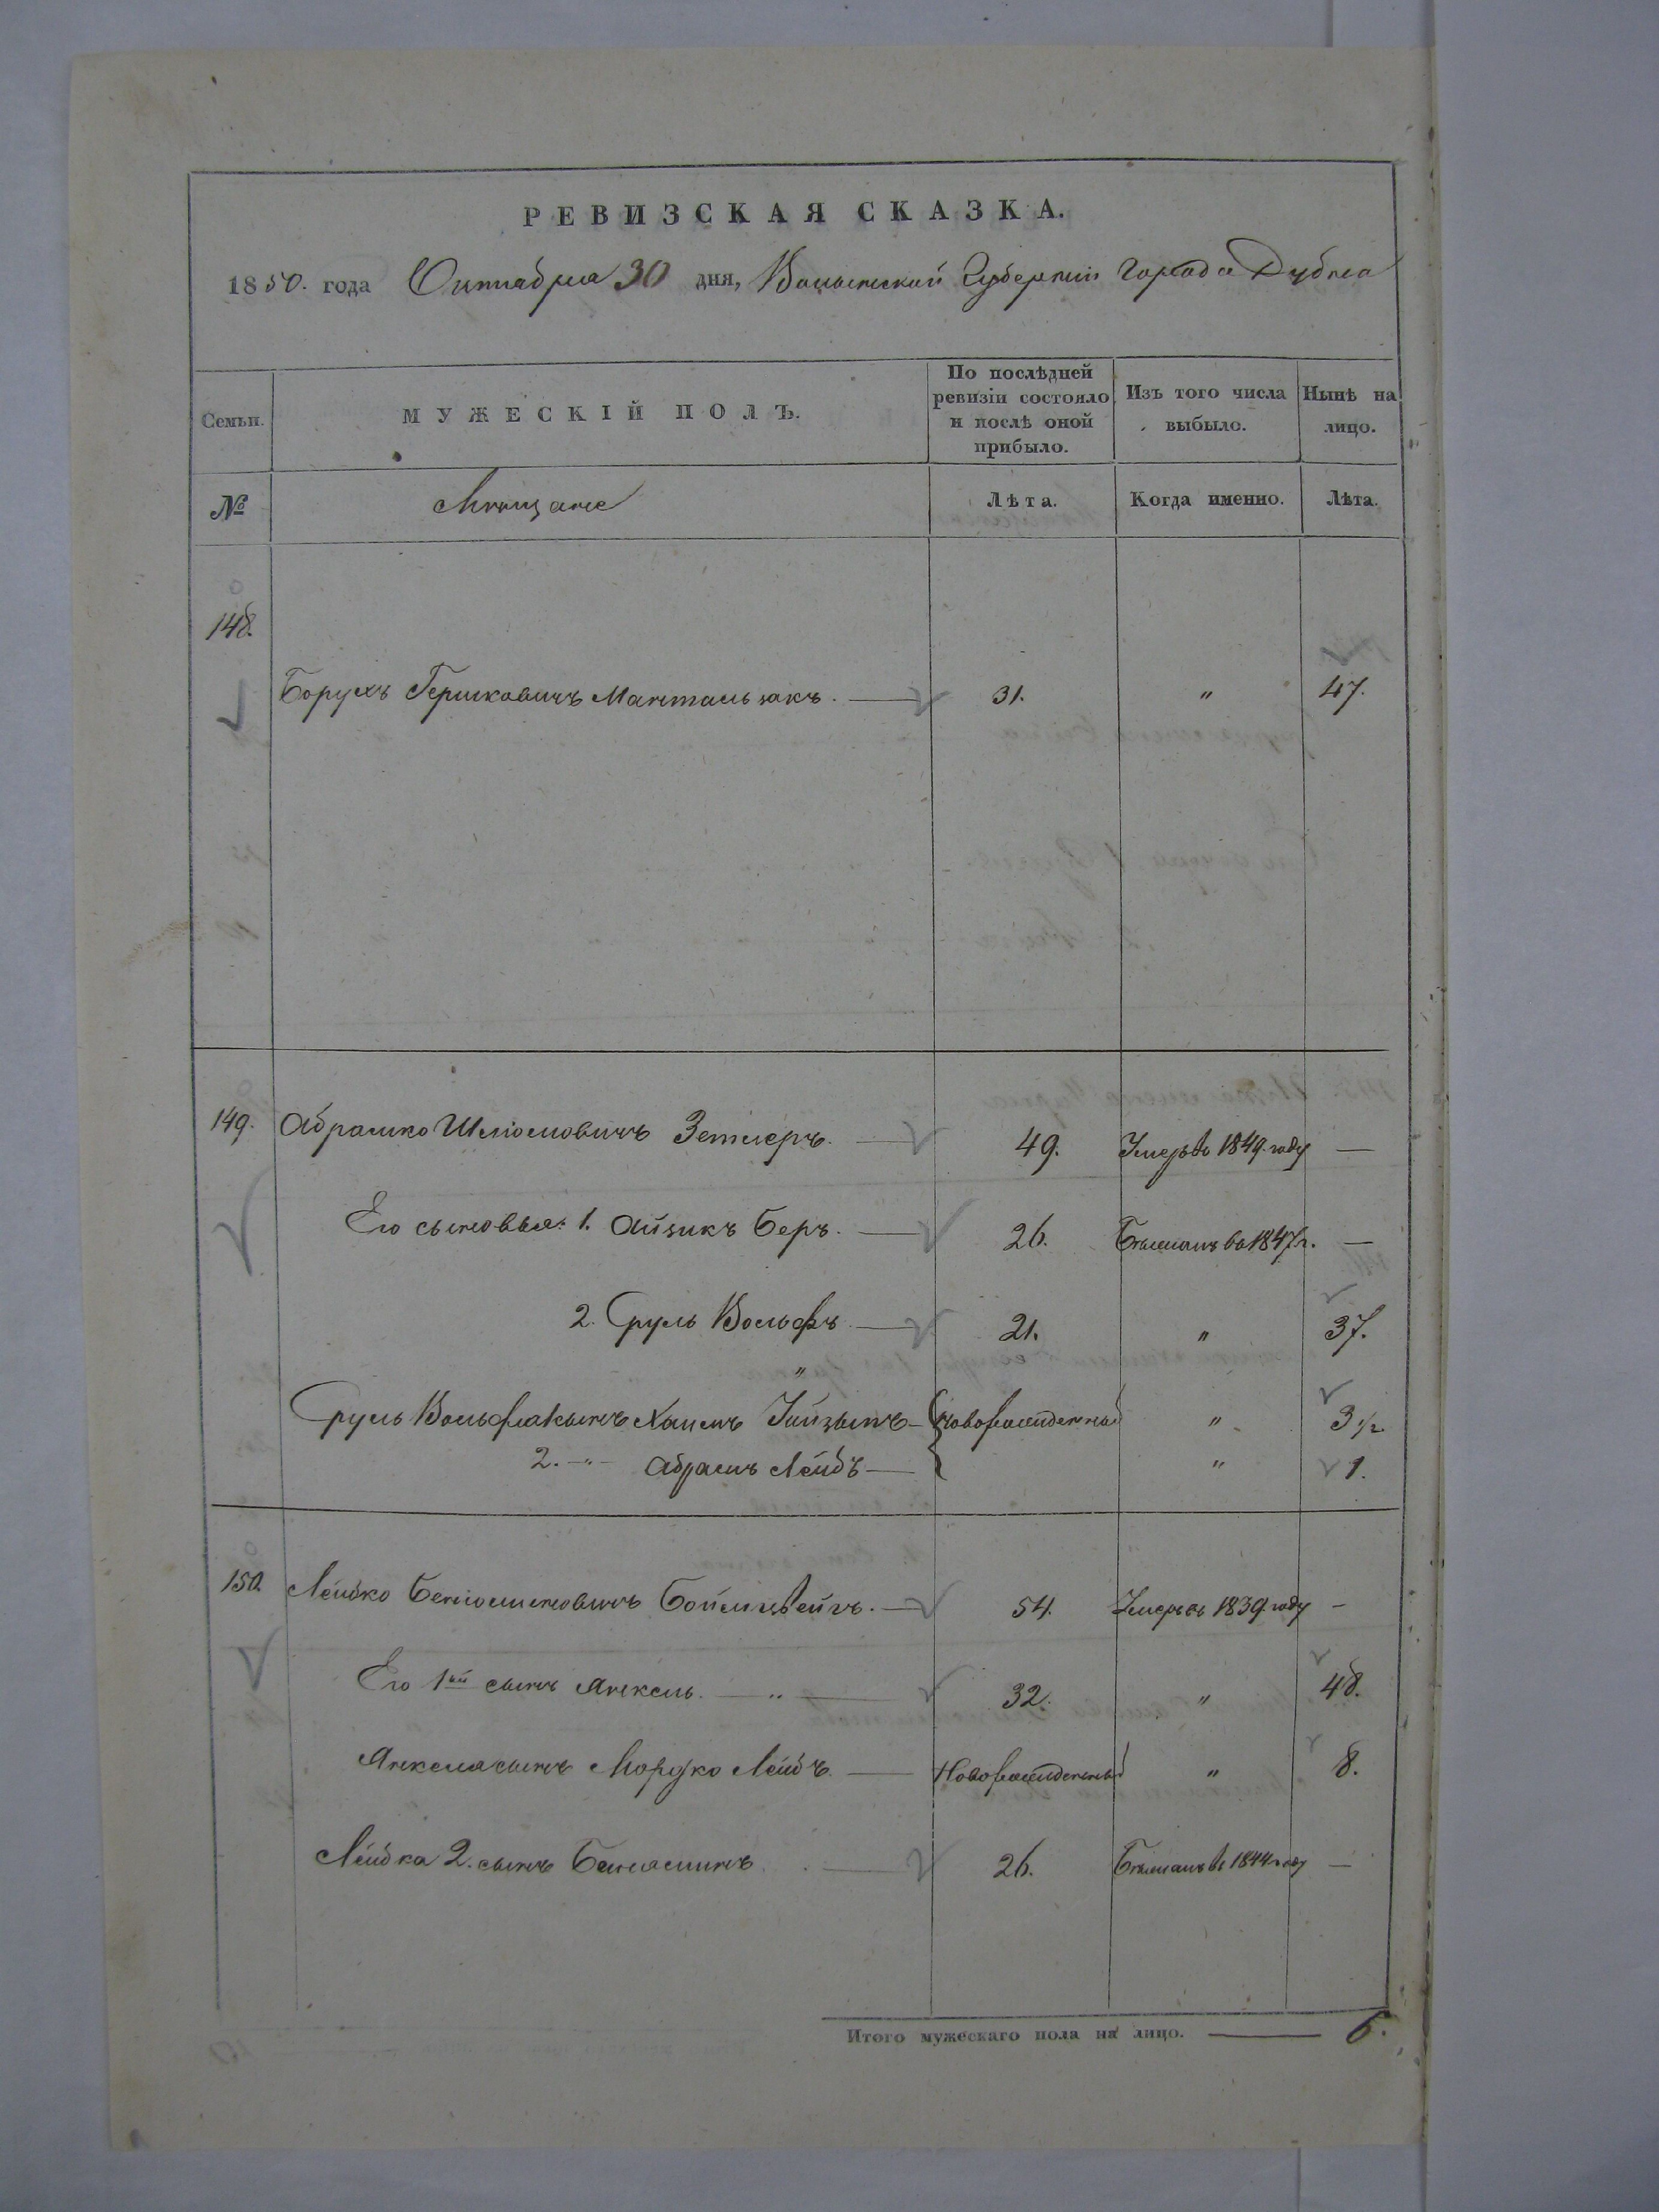 РЕВИЗСКАЯ СКАЗКА.
1850. года Октября 30 дня, Волынской Губернии Города Дубна
Семьи.
МУЖЕСКІЙ ПОЛЪ.
По послѣдней ревизіи состояло и послѣ оной прибыло.
Изъ того числа выбыло.
Нынѣ на лицо.
№ Мѣщане Лѣта. Когда именно. Лѣта.
148.
Борухъ Гершковичъ Мантальлакъ. — 31. " 47.
149. Абрамко Шліомовичъ Зетлеръ. — 49. Умеръ въ 1849. году —
Его сыновья: 1. Айзикъ Беръ. — 26. Бѣжалъ въ 1847 г. —
2. Сруль Вольфъ — 21. " 37.
"
Сруль Вольфа сынъ Хаимъ — новорожденный " 3 1/2.
2. —"— Абрамъ Лейбъ — " 1.
150. Лейбко Беніоминовичъ — 54. Умеръ въ 1839 году —
Его 1ый сынъ Янкель. — " — 32. " 48.
Янкеля сынъ Мордко Лейбъ — Новорожденный " 8.
Лейбка 2. сынъ Беніяминъ. — 26. Бѣжалъ въ 1844 году —
Итого мужескаго пола на лицо. — 6.